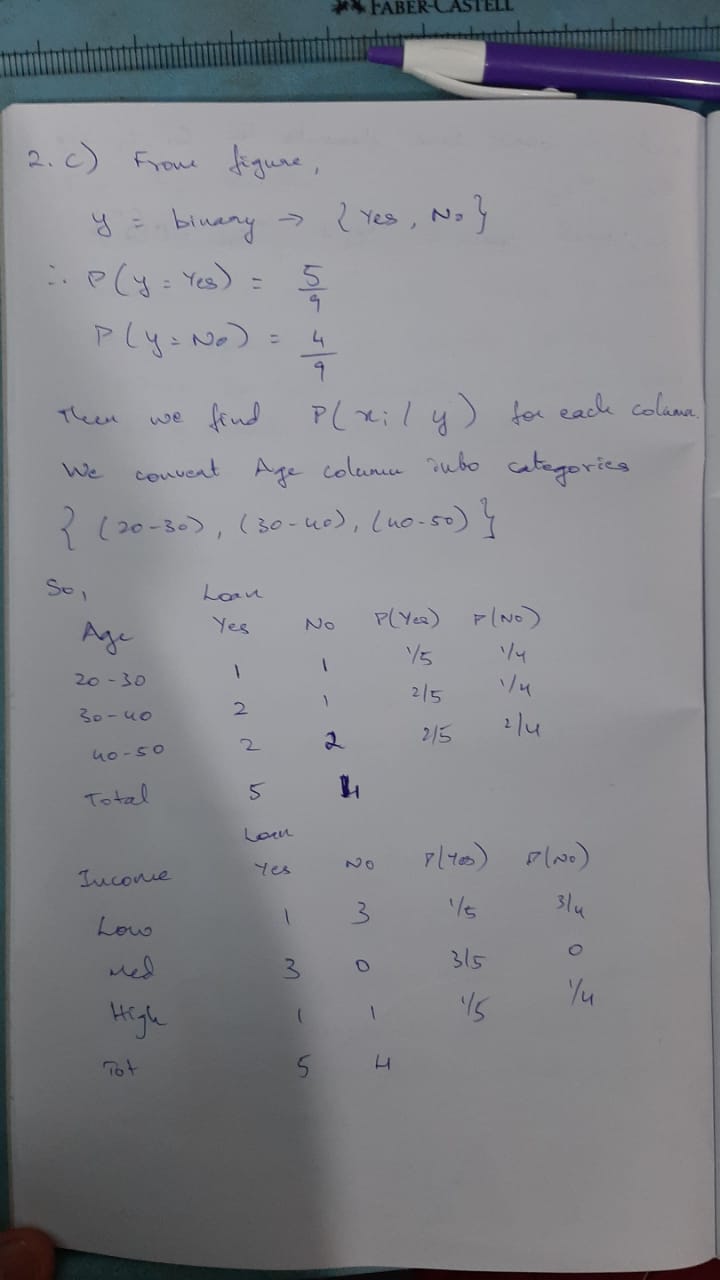 FABER-CASTELL
2. c) From figure,
y = binary → { Yes, No }
∴ P(y = Yes) = 5/9
P(y = No) = 4/9
Then we find P(xi / y) for each column.
We convert Age column into categories
{ (20-30), (30-40), (40-50) }
So, Loan
Age Yes No P(Yes) P(No)
20-30 1 1 1/5 1/4
30-40 2 1 2/5 1/4
40-50 2 2 2/5 2/4
Total 5 4
Loan
Income Yes No P(Yes) P(No)
Low 1 3 1/5 3/4
Med 3 0 3/5 0
High 1 1 1/5 1/4
Tot 5 4